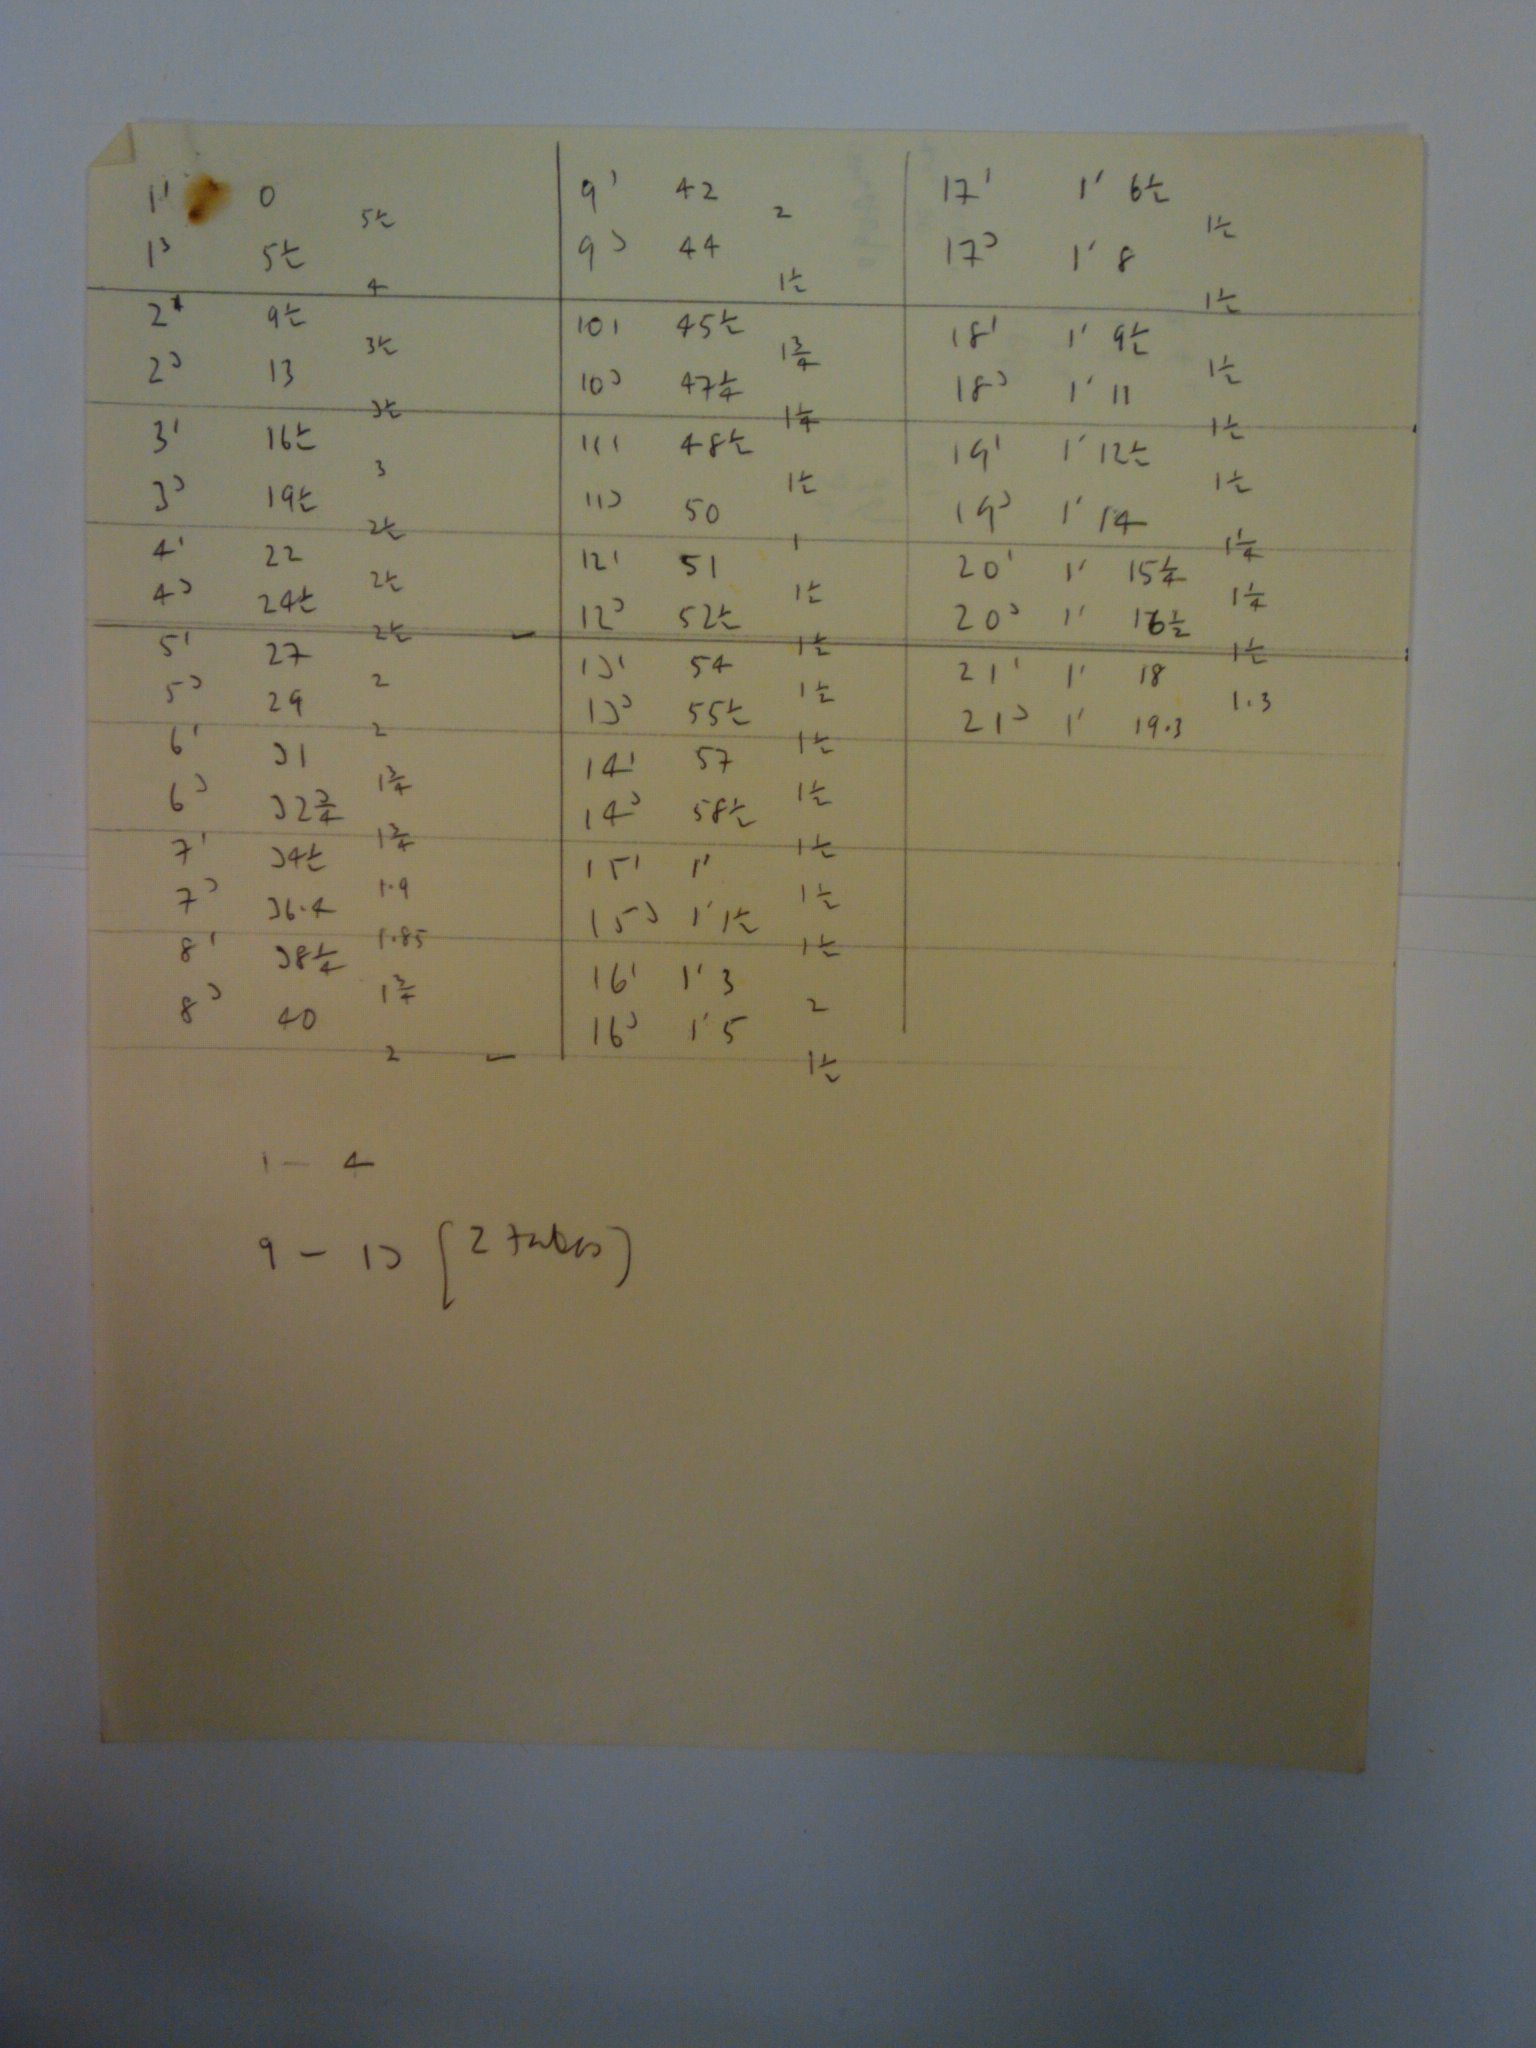 1' 0
5½
1³ 5½
4
2' 9½
3½
2³ 13
3½
3' 16½
3
3³ 19½
2½
4' 22
2½
4³ 24½
2½
5' 27
2
5³ 29
2
6' 31
1¾
6³ 32¾
1¾
7' 34½
1.9
7³ 36.4
1.85
8' 38¼
1¾
8³ 40
2
9' 42
2
9³ 44
1½
10' 45½
1¾
10³ 47¼
1¼
11' 48½
1½
11³ 50
1
12' 51
1½
12³ 52½
1½
13' 54
1½
13³ 55½
1½
14' 57
1½
14³ 58½
1½
15' 1'
1½
15³ 1' 1½
1½
16' 1' 3
2
16³ 1' 5
1½
17' 1' 6½
1½
17³ 1' 8
1½
18' 1' 9½
1½
18³ 1' 11
1½
19' 1' 12½
1½
19³ 1' 14
1¼
20' 1' 15¼
1¼
20³ 1' 16½
1½
21' 1' 18
1.3
21³ 1' 19.3
1 – 4
9 – 13 (2 tubes)